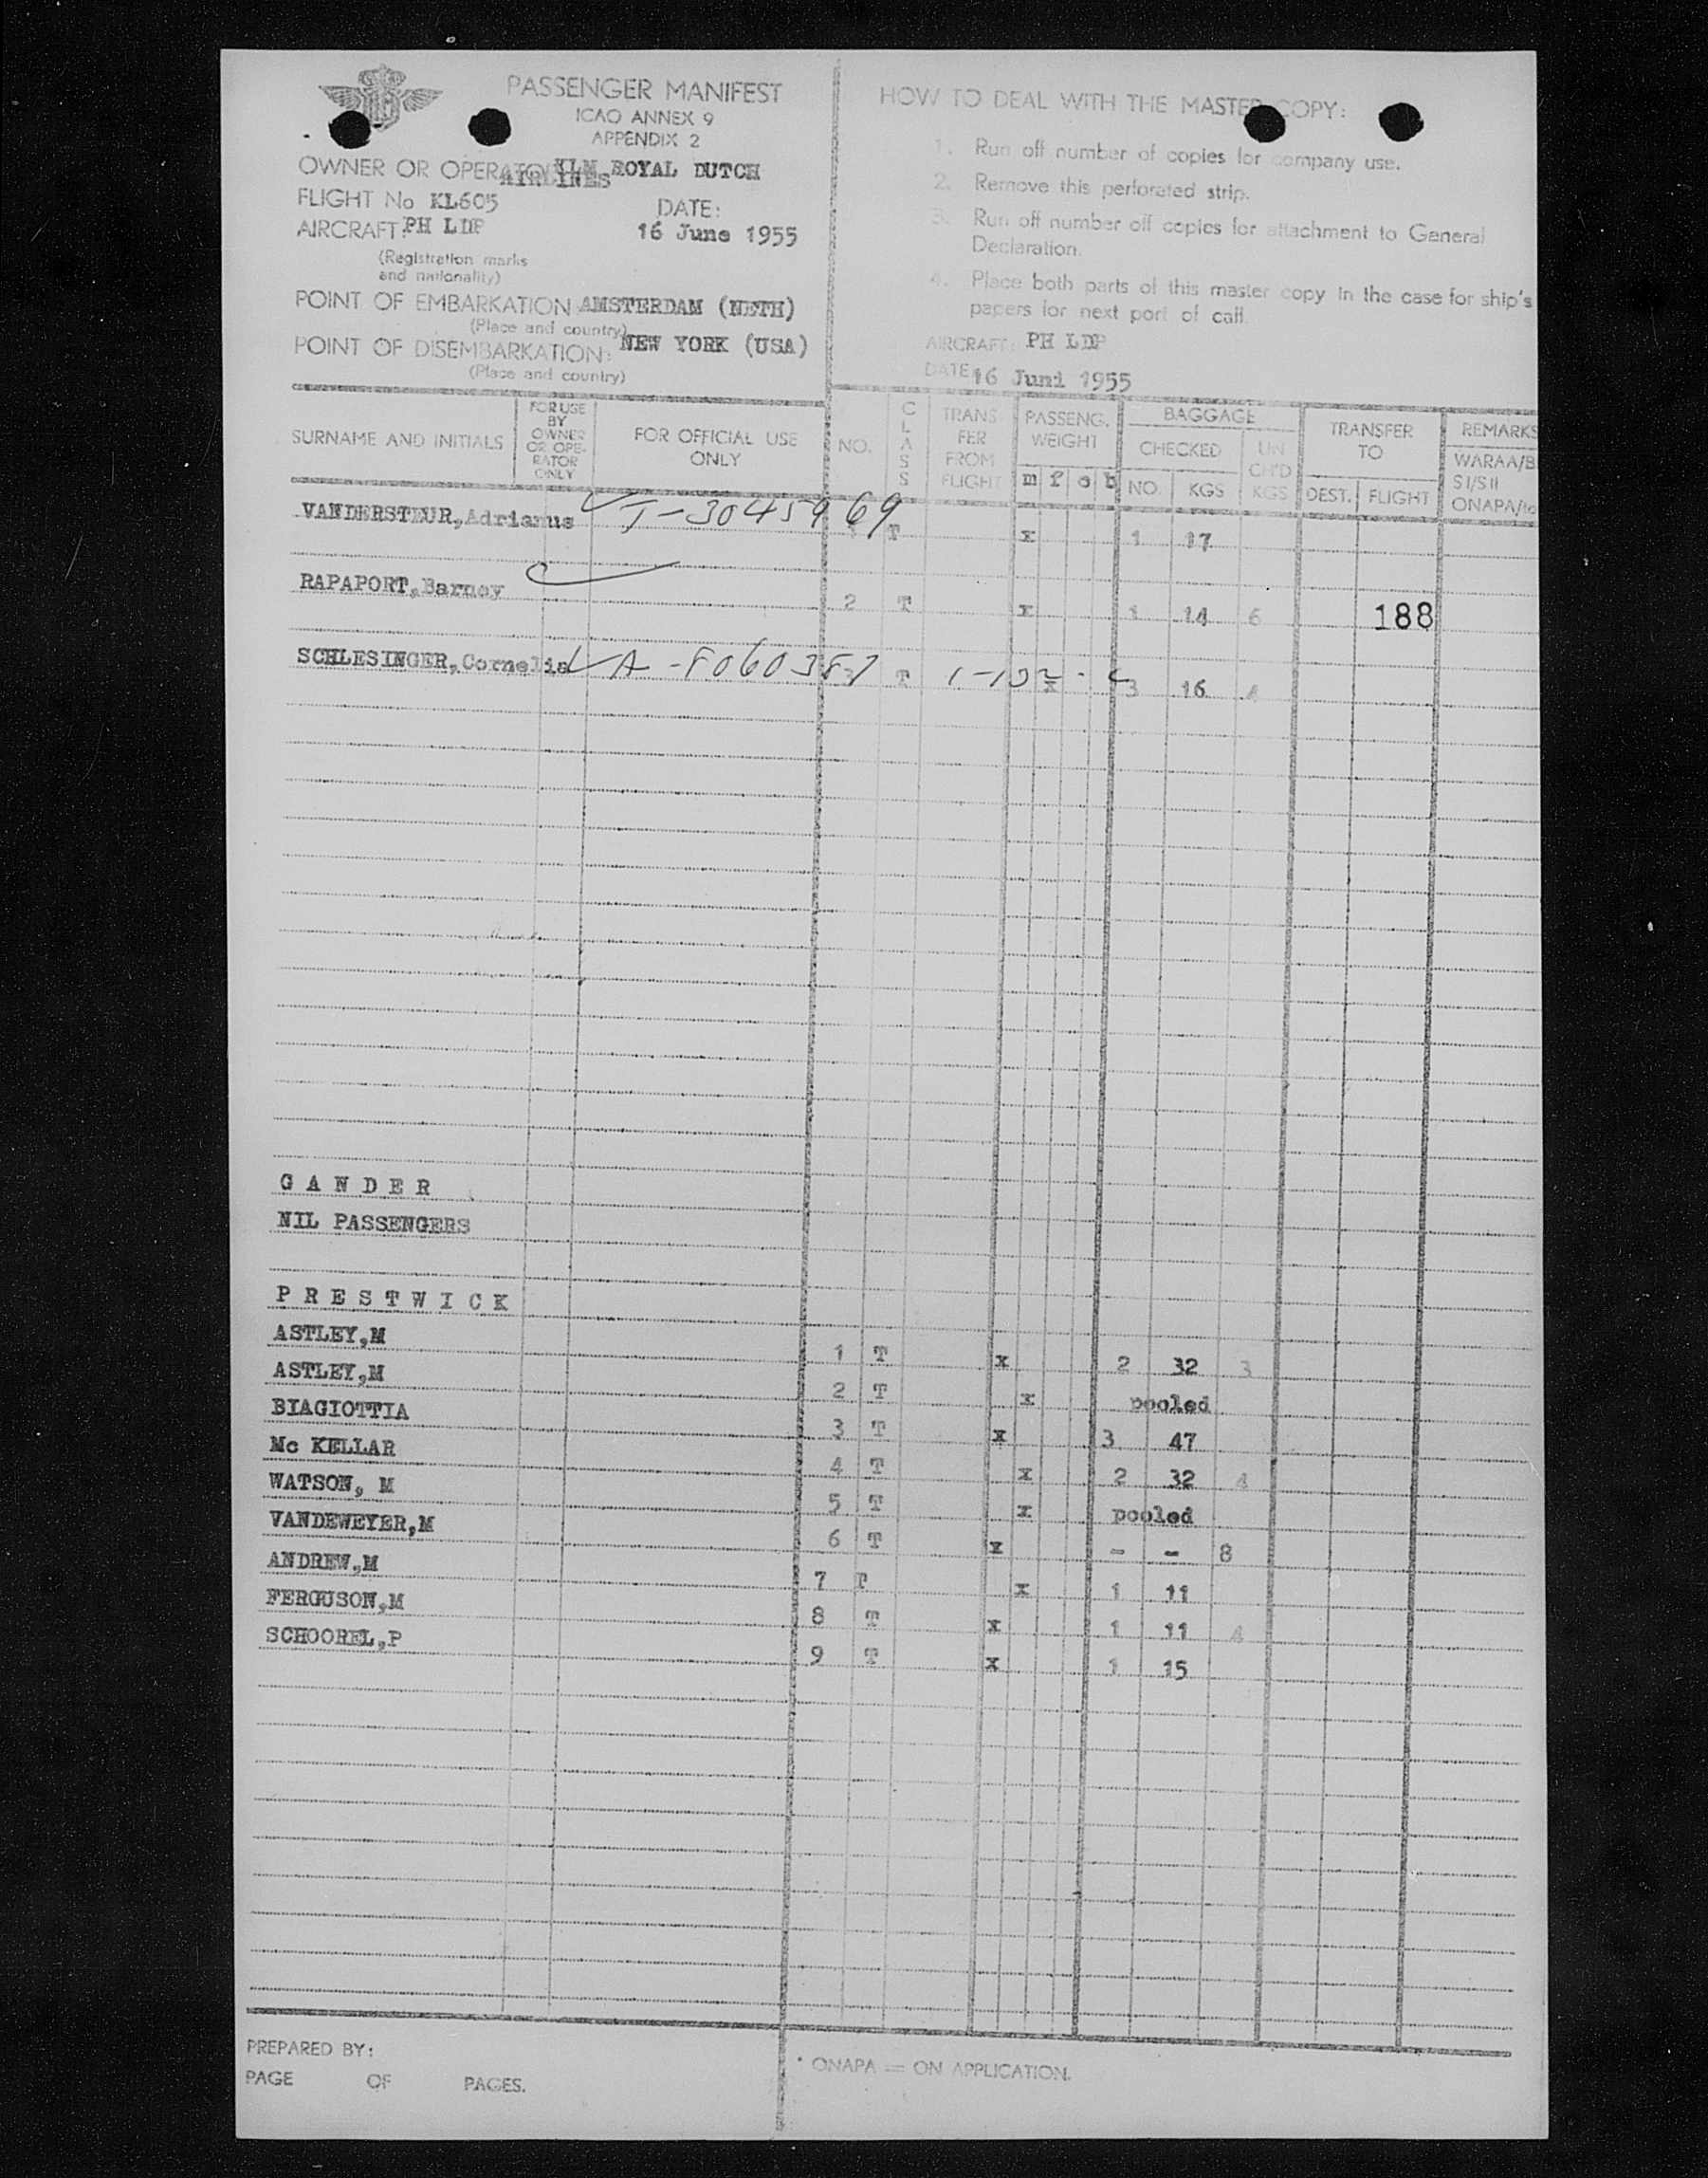 PASSENGER MANIFEST
ICAO ANNEX 9
APPENDIX 2
OWNER OR OPERATOR KLM ROYAL DUTCH
AIRLINES
FLIGHT No KL605
DATE:
AIRCRAFT: PH LDP
16 June 1955
(Registration marks
and nationality)
POINT OF EMBARKATION AMSTERDAM (NETH)
(Place and country)
POINT OF DISEMBARKATION: NEW YORK (USA)
(Place and country)
HOW TO DEAL WITH THE MASTER COPY:
1. Run off number of copies for company use.
2. Remove this perforated strip.
3. Run off number off copies for attachment to General
Declaration.
4. Place both parts of this master copy in the case for ship's
papers for next port of call.
AIRCRAFT: PH LDP
DATE 16 Juni 1955
SURNAME AND INITIALS
FOR USE
BY
OWNER
OR OPE-
RATOR
ONLY
FOR OFFICIAL USE
ONLY
NO.
CLASS
TRANS
FER
FROM
FLIGHT
PASSENG.
WEIGHT
m f c b
BAGGAGE
CHECKED
NO. KGS
UN
CH'D
KGS
TRANSFER
TO
DEST. FLIGHT
REMARKS
WARAA/B
SI/SII
ONAPA/
VANDERSTEUR, Adrianus T-3045969 T x 1 17
RAPAPORT, Barney 2 T x 1 14 6 188
SCHLESINGER, Cornelis A-8060387 3 T x 3 16 4
GANDER
NIL PASSENGERS
PRESTWICK
ASTLEY,M 1 T x 2 32 3
ASTLEY,M 2 T x pooled
BIAGIOTTIA 3 T x 3 47
Mc KELLAR 4 T x 2 32 4
WATSON, M 5 T x pooled
VANDEWEYER,M 6 T x - - 8
ANDREW,M 7 T x 1 11
FERGUSON,M 8 T x 1 11 4
SCHOOREL,P 9 T x 1 15
PREPARED BY:
PAGE OF PAGES.
* ONAPA = ON APPLICATION.